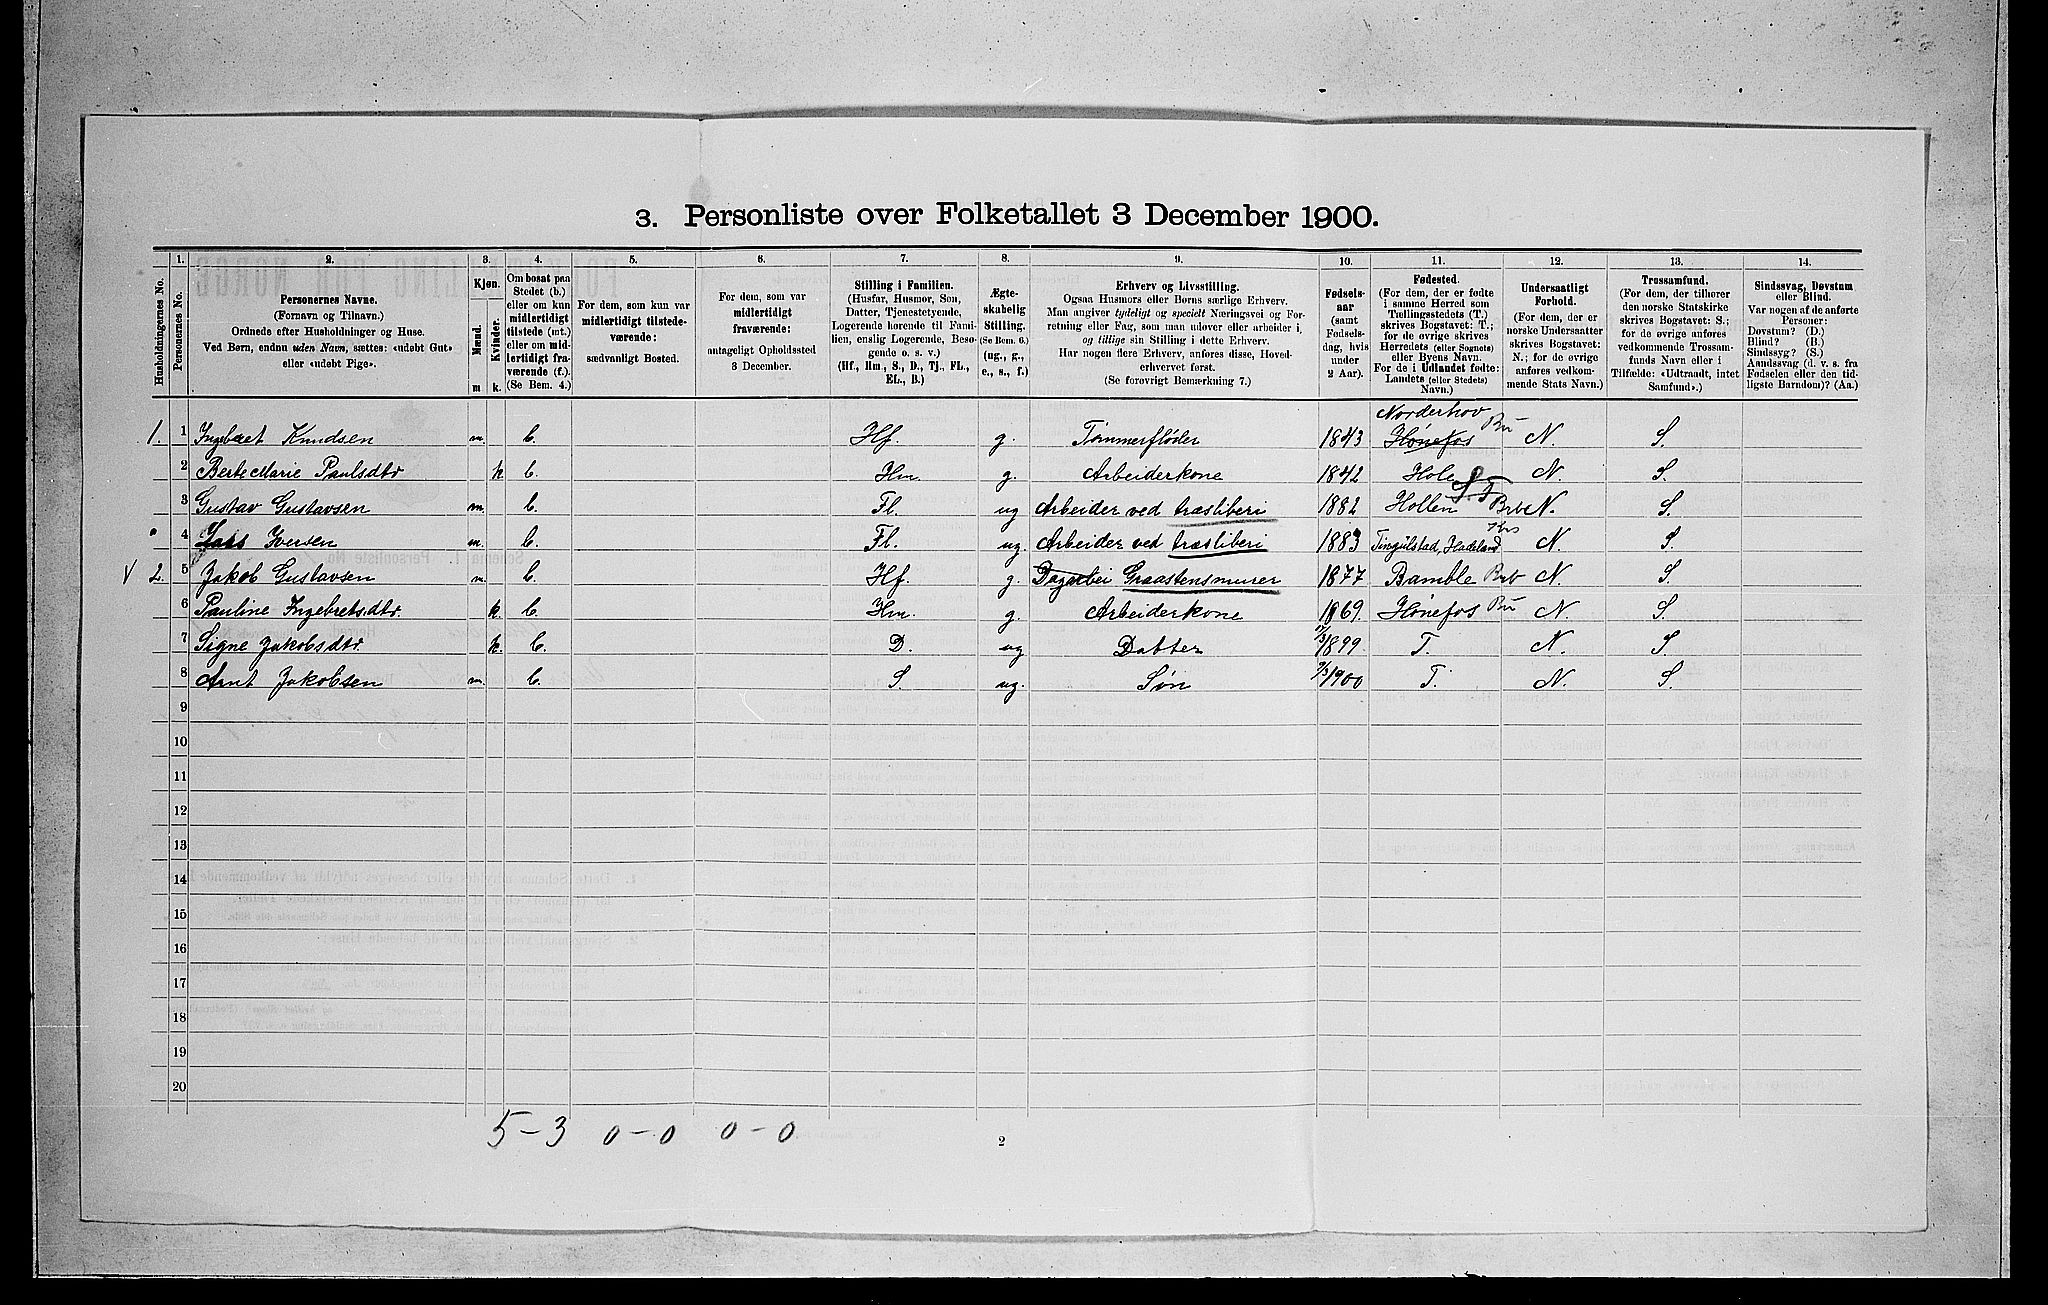 3. Personliste over Folketallet 3 December 1900.
1. 2. 3. 4. 5. 6. 7. 8. 9. 10. 11. 12. 13. 14.
Husholdningernes No.
Personernes No.
Personernes Navne.
(Fornavn og Tilnavn.)
Ordnede efter Husholdninger og Huse.
Ved Børn, endnu uden Navn, sættes: «udøbt Gut»
eller «udøbt Pige».
Kjøn.
Mænd.
Kvinder.
m k.
Om bosat paa
Stedet (b.)
eller om kun
midlertidigt
tilstede (mt.)
eller om mid-
lertidigt fra-
værende (f.).
(Se Bem. 4.)
For dem, som kun var
midlertidigt tilstede-
værende:
sædvanligt Bosted.
For dem, som var
midlertidigt
fraværende:
antageligt Opholdssted
3 December.
Stilling i Familien.
(Husfar, Husmor, Søn,
Datter, Tjenestetyende,
Logerende hørende til Fami-
lien, enslig Logerende, Besø-
gende o. s. v.)
(Hf., Hm., S., D., Tj., FL.,
EL., B.)
Ægte-
skabelig
Stilling.
(Se Bem. 6.)
(ug., g.,
e., s., f.)
Erhverv og Livsstilling.
Ogsaa Husmors eller Børns særlige Erhverv.
Man angiver tydeligt og specielt Næringsvei og For-
retning eller Fag, som man udøver eller arbeider i,
og tillige sin Stilling i dette Erhverv.
Har nogen flere Erhverv, anføres disse, Hoved-
erhvervet først.
(Se forøvrigt Bemærkning 7.)
Fødsels-
aar
(samt
Fødsels-
dag, hvis
under
2 Aar).
Fødested.
(For dem, der er fødte
i samme Herred som
Tællingsstedets (T.)
skrives Bogstavet: T.;
for de øvrige skrives
Herredets (eller Sognets)
eller Byens Navn.
For de i Udlandet fødte:
Landets (eller Stedets)
Navn.)
Undersaatligt
Forhold.
(For dem, der er
norske Undersaatter
skrives Bogstavet:
N.; for de øvrige
anføres vedkom-
mende Stats Navn.)
Trossamfund.
(For dem, der tilhører
den norske Statskirke
skrives Bogstavet: S.;
for de øvrige anføres
vedkommende Trossam-
funds Navn eller i
Tilfælde: «Udtraadt, intet
Samfund».)
Sindssvag, Døvstum
eller Blind.
Var nogen af de anførte
Personer:
Døvstum? (D.)
Blind? (B.)
Sindssyg? (S.)
Aandssvag (d. v. s. fra
Fødselen eller den tid-
ligste Barndom)? (Aa.)
1. 1 Ingebret Knudsen m. b. Hf. g. Tømmerfløder 1843 Norderhov Hønefos Bu N. S.
2 Berte Marie Paulsdtr k b. Hm. g. Arbeiderkone 1842 Hole N. S.
3 Gustav Gustavsen m. b. Fl. ug Arbeider ved træsliberi 1882 Hollen Brb N. S.
4 Lars Iversen m. b. Fl. ug. Arbeider ved træsliberi 1883 Tingelstad, Hadeland N. S.
V 2. 5 Jakob Gustavsen m. b. Hf. g. Dagarbei Graastensmurer 1877 Bamble Brb N. S.
6 Pauline Ingebretsdtr. k. b. Hm. g. Arbeiderkone 1869. Hønefos Bu N. S.
7 Signe Jakobsdtr. k. b. D. ug Datter 1899 T. N. S.
8 Arnt Jakobsen m. b. S. ug. Søn 1900 T. N. S.
9
10
11
12
13
14
15
16
17
18
19
20
5 - 3 0 - 0 0 - 0
2